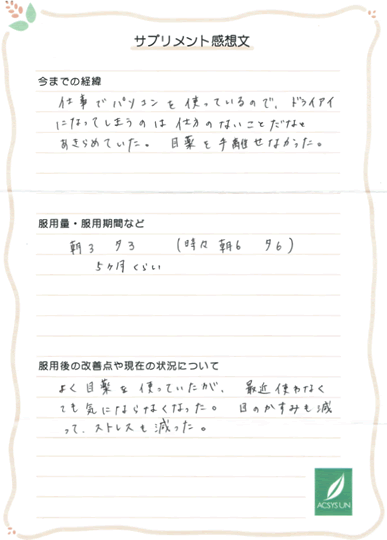 サプリメント感想文
今までの経緯
仕事でパソコンを使っているので、ドライアイ
になってしまうのは仕方のないことだなと
あきらめていた。 目薬を手離せなかった。
服用量・服用期間など
朝3 夕3 (時々 朝6 夕6)
5ヶ月くらい
服用後の改善点や現在の状況について
よく目薬を使っていたが、 最近使わなく
ても気にならなくなった。 目のかすみも減
って、ストレスも減った。
ACSYS UN